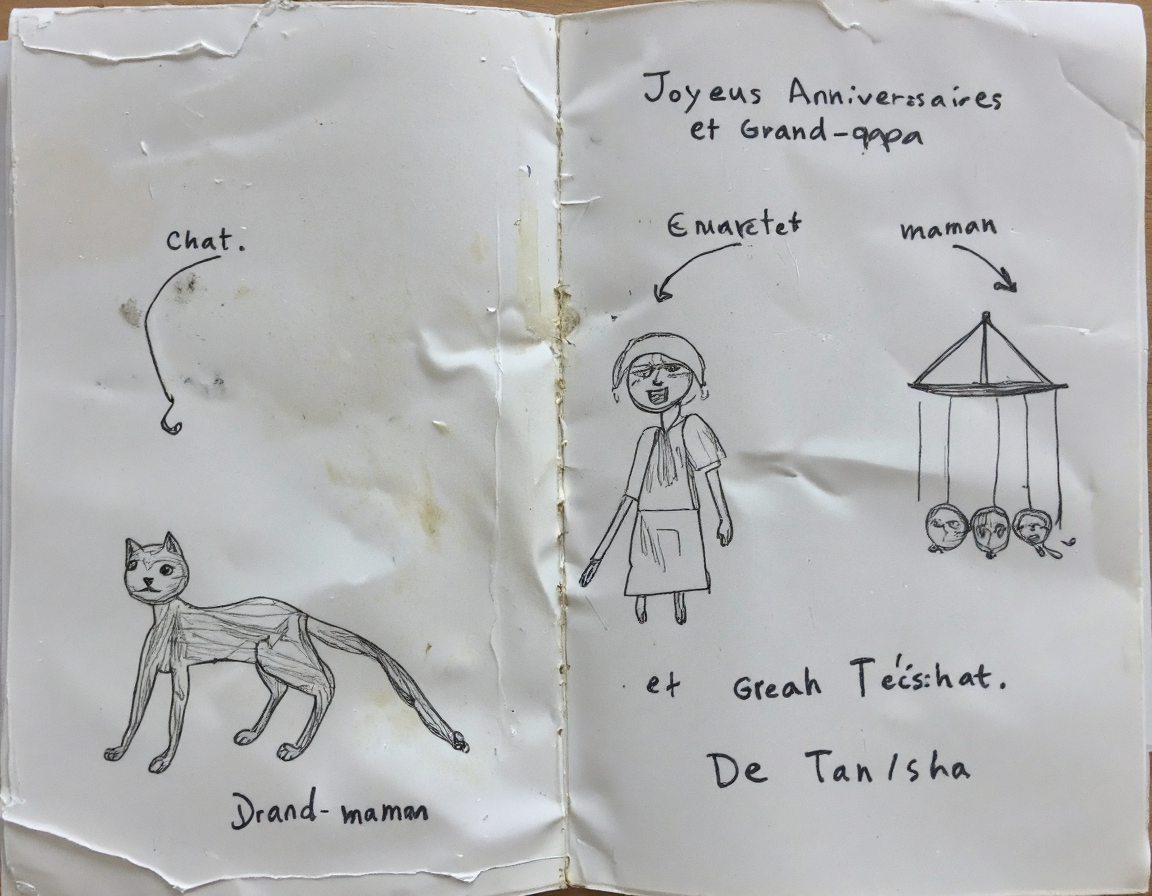 Chat.
Drand-maman
Joyeus Anniversaires
et Grand-qapa
maman
et Greah
De Tan/sha